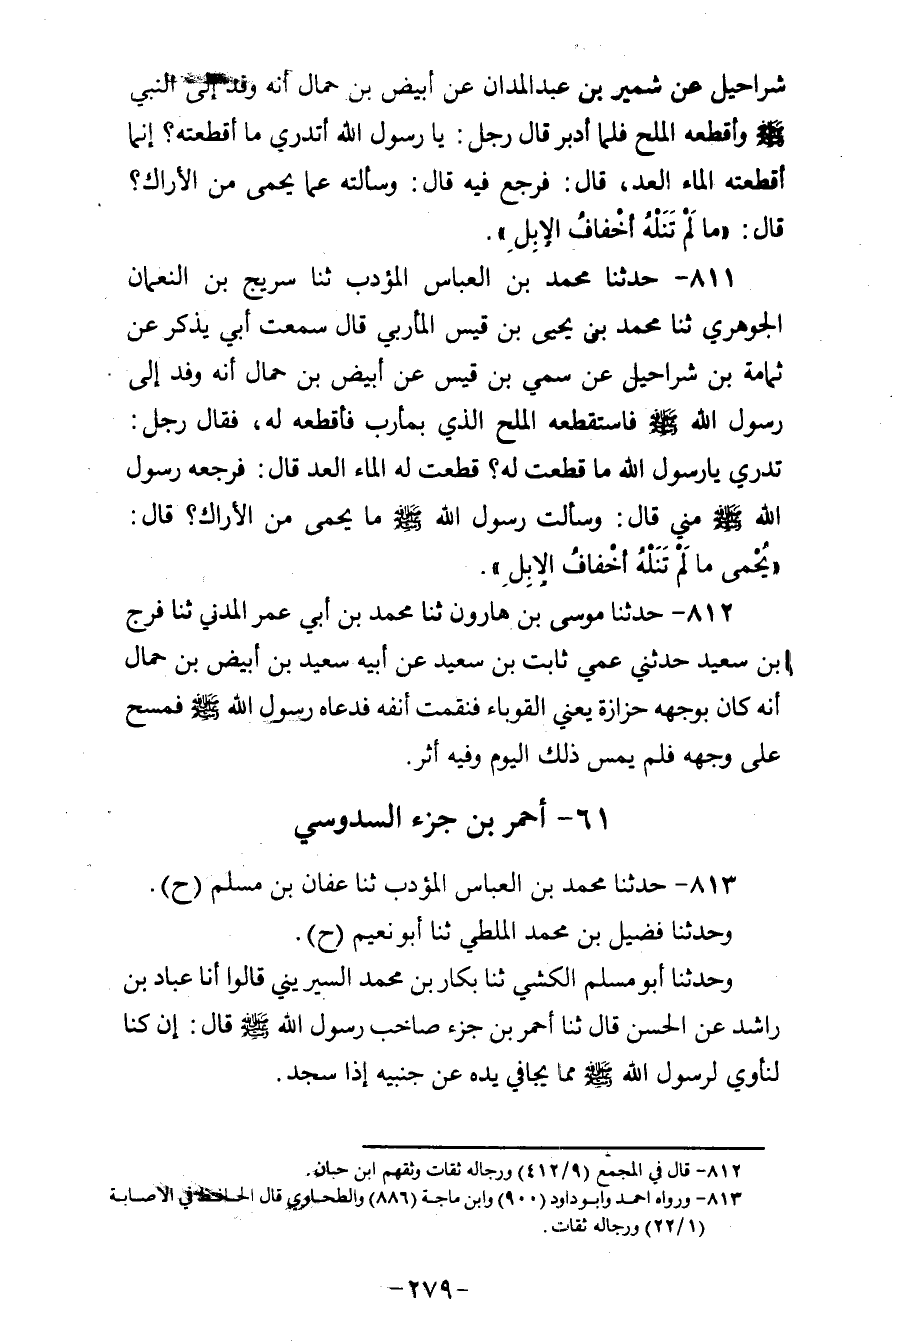 شراحيل عن شمير بن عبدالمدان عن أبيض بن حمال أنه وفد إلى النبي
ﷺ وأقطعه الملح فلما أدبر قال رجل: يا رسول الله أتدري ما أقطعته؟ إنما
أقطعته الماء العد، قال: فرجع فيه قال: وسألته عما يحمى من الأراك؟
قال: «ما لَمْ تَنَلْهُ أخْفافُ الإبِلِ».
٨١١- حدثنا محمد بن العباس المؤدب ثنا سريج بن النعمان
الجوهري ثنا محمد بن يحيى بن قيس المأربي قال سمعت أبي يذكر عن
ثمامة بن شراحيل عن سمي بن قيس عن أبيض بن حمال أنه وفد إلى
رسول الله ﷺ فاستقطعه الملح الذي بمأرب فأقطعه له، فقال رجل:
تدري يارسول الله ما قطعت له؟ قطعت له الماء العد قال: فرجعه رسول
الله ﷺ مني قال: وسألت رسول الله ﷺ ما يحمى من الأراك؟ قال:
«يُحْمى ما لَمْ تَنَلْهُ أخْفافُ الإبِلِ».
٨١٢- حدثنا موسى بن هارون ثنا محمد بن أبي عمر المدني ثنا فرج
ابن سعيد حدثني عمي ثابت بن سعيد عن أبيه سعيد بن أبيض بن حمال
أنه كان بوجهه حزازة يعني القوباء فنقمت أنفه فدعاه رسول الله ﷺ فمسح
على وجهه فلم يمس ذلك اليوم وفيه أثر.
٦١- أحمر بن جزء السدوسي
٨١٣- حدثنا محمد بن العباس المؤدب ثنا عفان بن مسلم (ح).
وحدثنا فضيل بن محمد الملطي ثنا أبو نعيم (ح).
وحدثنا أبو مسلم الكشي ثنا بكار بن محمد السيريني قالوا أنا عباد بن
راشد عن الحسن قال ثنا أحمر بن جزء صاحب رسول الله ﷺ قال: إن كنا
لنأوي لرسول الله ﷺ مما يجافي يده عن جنبيه إذا سجد.
٨١٢- قال في المجمع (٤١٢/٩) ورجاله ثقات وثقهم ابن حبان.
٨١٣- ورواه احمد وابو داود (٩٠٠) وابن ماجة (٨٨٦) والطحاوي قال الحافظ في الاصابة
(٢٢/١) ورجاله ثقات.
-٢٧٩-